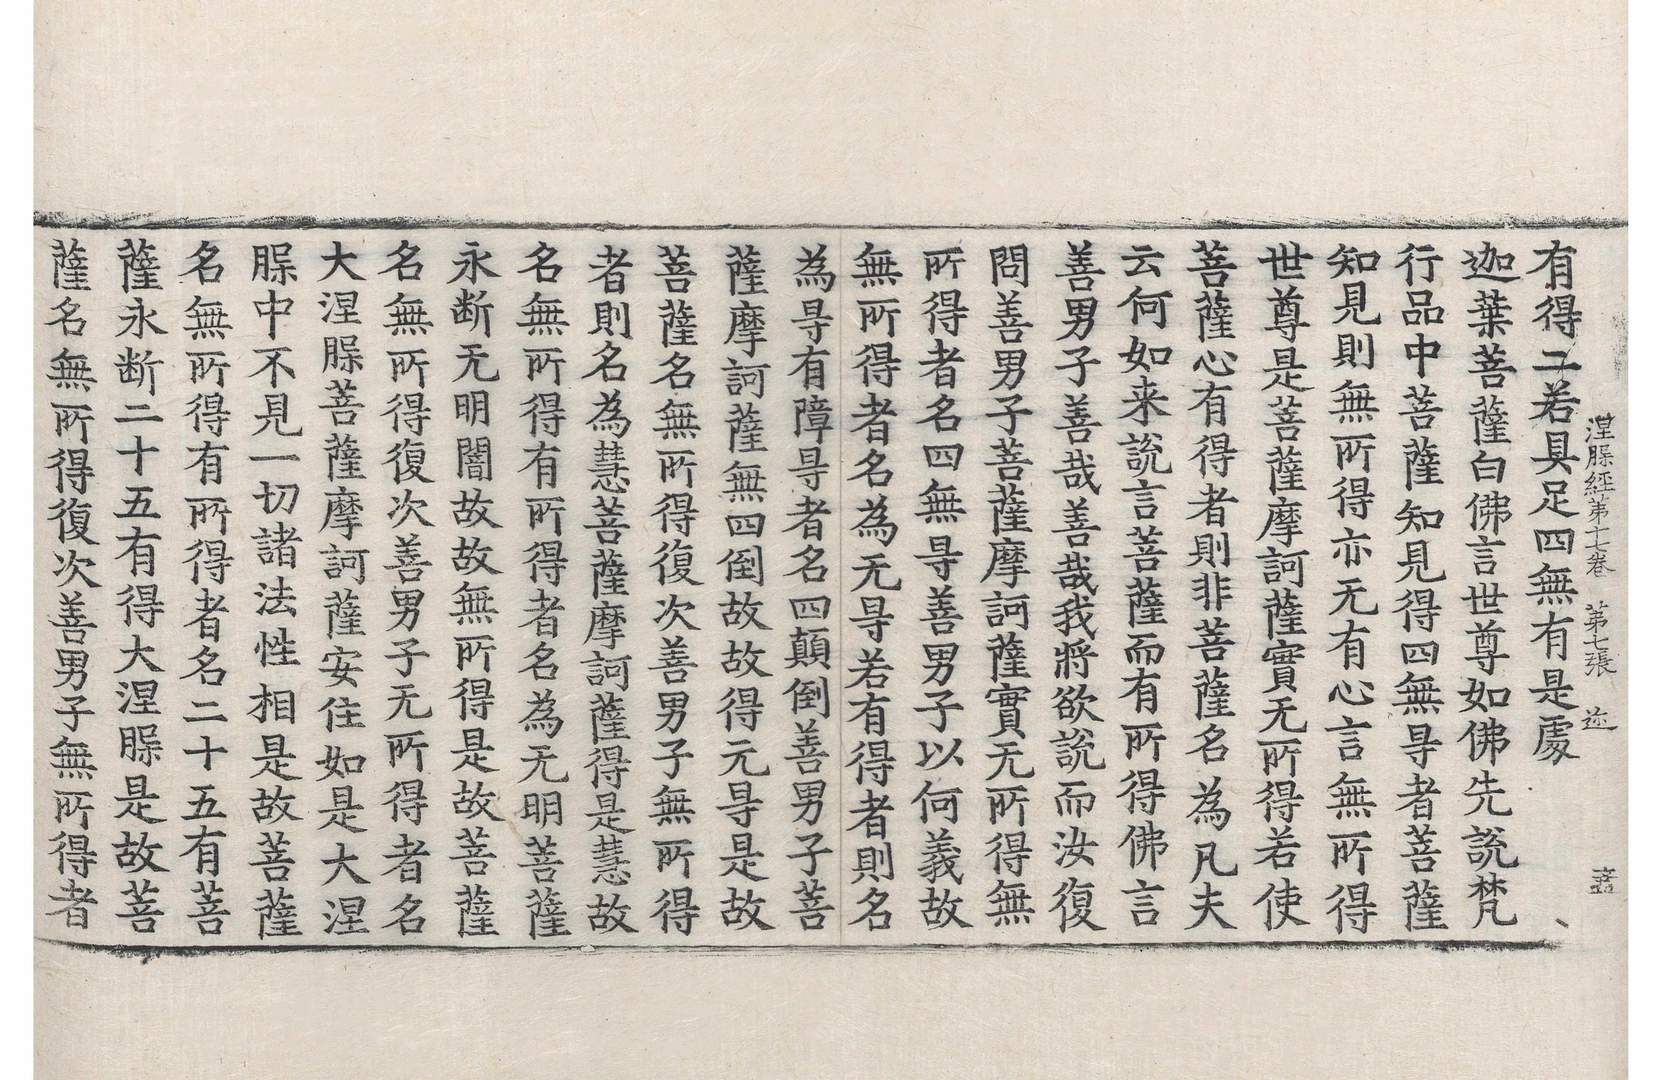 涅槃經第十七卷　第七張　迩
有得二若具足四無有是處
迦葉菩薩白佛言世尊如佛先說梵
行品中菩薩知見得四無㝵者菩薩
知見則無所得亦无有心言無所得
世尊是菩薩摩訶薩實无所得若使
菩薩心有得者則非菩薩名為凡夫
云何如来說言菩薩而有所得佛言
善男子善哉善哉我將欲說而汝復
問善男子菩薩摩訶薩實无所得無
所得者名四無㝵善男子以何義故
無所得者名為无㝵若有得者則名
為㝵有障㝵者名四顛倒善男子菩
薩摩訶薩無四倒故故得无㝵是故
菩薩名無所得復次善男子無所得
者則名為慧菩薩摩訶薩得是慧故
名無所得有所得者名為无明菩薩
永断无明闇故故無所得是故菩薩
名無所得復次善男子无所得者名
大涅槃菩薩摩訶薩安住如是大涅
槃中不見一切諸法性相是故菩薩
名無所得有所得者名二十五有菩
薩永断二十五有得大涅槃是故菩
薩名無所得復次善男子無所得者